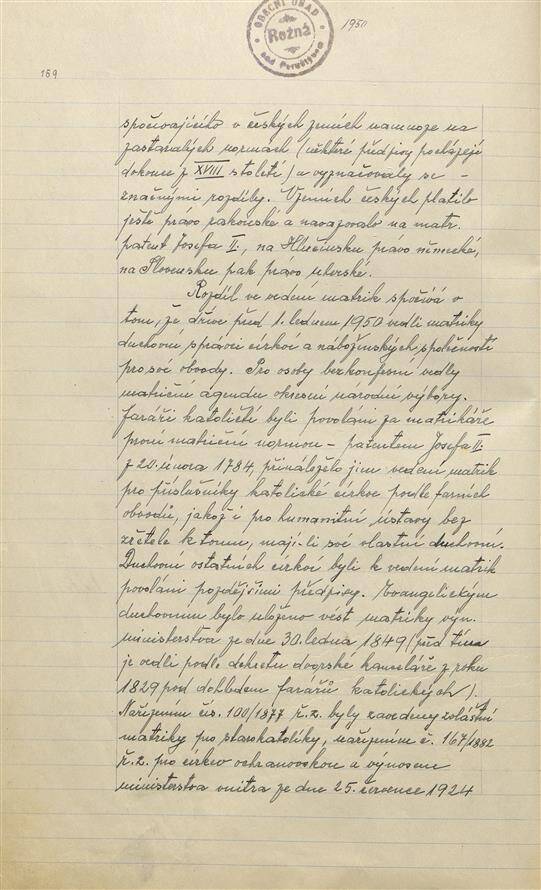 OBECNÍ ÚŘAD
Rožná
nad Pernštýnem
1950
159
spočívajícího v českých zemích namnoze na
zastaralých normách (některé předpisy pocházejí
dokonce z XVIII století) a vyznačovaly se -
značnými rozdíly. V zemích českých platilo
ještě právo rakouské a navazovalo na matr.
patent Josefa II., na Hlučínsku právo německé,
na Slovensku pak právo uherské.
Rozdíl ve vedení matrik spočívá v
tom, že dříve před 1. lednem 1950 vedli matriky
duchovní správci církví a náboženských společností
pro své obvody. Pro osoby bezkonfesní vedly
matriční agendu okresní národní výbory.
Faráři katoličtí byli povoláni za matrikáře
první matriční normou - patentem Josefa II.
z 20. února 1784, přináleželo jim vedení matrik
pro příslušníky katolické církve podle farních
obvodů, jakož i pro humanitní ústavy bez
zřetele k tomu, mají-li své vlastní duchovní.
Duchovní ostatních církví byli k vedení matrik
povoláni pozdějšími předpisy. Evangelickým
duchovním bylo uloženo vést matriky výn.
ministerstva ze dne 30. ledna 1849 (před tím
je vedli podle dekretu dvorské kanceláře z roku
1829 pod dohledem farářů katolických).
Nařízením čís. 100/1877 ř.z. byly zavedeny zvláštní
matriky pro starokatolíky, nařízením č. 167/1882
ř.z. pro církev ochranovskou a výnosem
ministerstva vnitra ze dne 25. července 1924